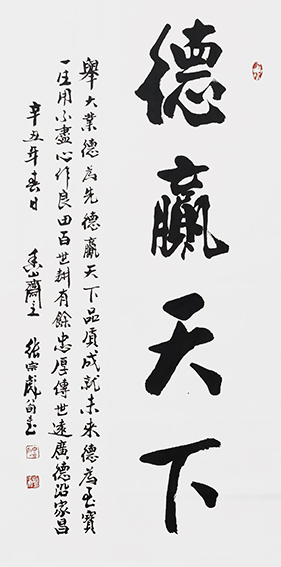 德赢天下
舉大業德為先德赢天下品質成就未來德為至寶
一生用不盡心作良田百世耕有餘忠厚傳世遠廣德沿家昌
辛丑年春日
齋主 張宗彪